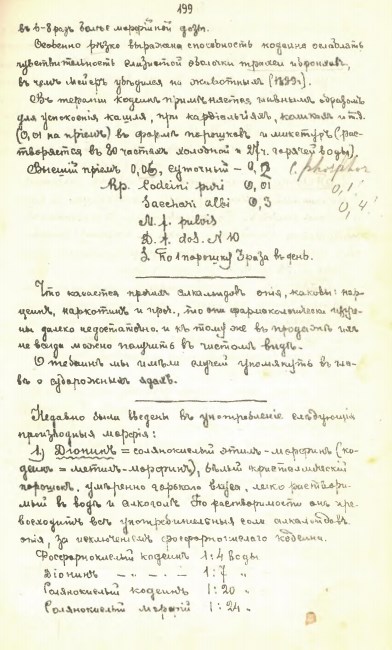 199
въ 6-8 разъ больше морфiйной дозы.
Особенно рѣзко выражена способность кодеина ослаблять
чувствительность слизистой оболочки трахеи и бронховъ,
въ чемъ убѣдился на животныхъ
Въ терапiи кодеинъ примѣняется главнымъ образомъ
для успокоенiя кашля, при кардiальгiяхъ, коликахъ и т.д.
(0,01 на прiемъ) въ формѣ порошковъ и микстуръ (рас-
творяется въ 80 частяхъ холодной и 27 ч. горячей воды).
Высшiй прiемъ 0,05, суточный – 0,2 C. phosphor
Rp. Codeini puri 0,01 0,1!
Sacchari albi 0,3 0,4!
M. f. pulvis
D. t. dos. N 10
S. По 1 порошку 3 раза въ день.
Что касается прочихъ алкалоидовъ опiя, каковы: нар-
цеинъ, наркотинъ и проч., то они фармакологически изуче-
ны далеко недостаточно, и къ тому же въ продажѣ ихъ
не всегда можно получить въ чистомъ видѣ.
О тебаинѣ мы имѣли случай упомянуть въ гла-
вѣ о судорожныхъ ядахъ.
Недавно были введены въ употребленiе слѣдующiя
производныя морфiя:
1) Дiонинъ = солянокислый этилъ-морфинъ (ко-
деинъ = метилъ-морфинъ), бѣлый кристаллическiй
порошокъ, умѣренно горькаго вкуса, легко раствори-
мый въ водѣ и алкоголѣ. По растворимости онъ пре-
восходитъ всѣ употребительныя соли алкалоидовъ
опiя, за исключенiемъ фосфорнокислаго кодеина.
Фосфорнокислый кодеинъ 1:4 воды
Дiонинъ – – – – 1:7 „
Солянокислый кодеинъ 1:20 „
Солянокислый морфiй 1:24 „